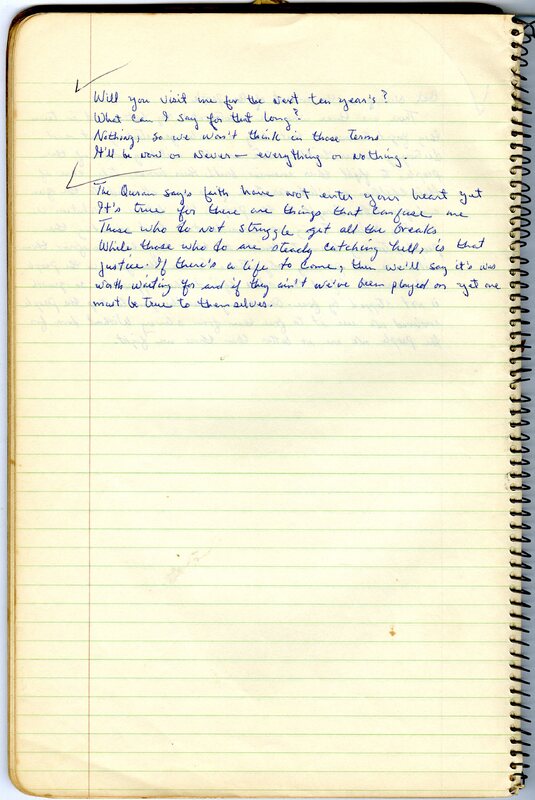 Will you visit me for the next ten year's?
What can I say for that long?
Nothing, so we won't think in those terms
It'll be now or never — everything or nothing.
The Quran say's faith have not enter your heart yet
It's true for there are things that confuse me
Those who do not struggle get all the breaks
While those who do are steady catching hell, is that
justice. If there's a life to come, then we'll say it's was
worth waiting for and if they ain't we've been played on yet one
must be true to themselves.